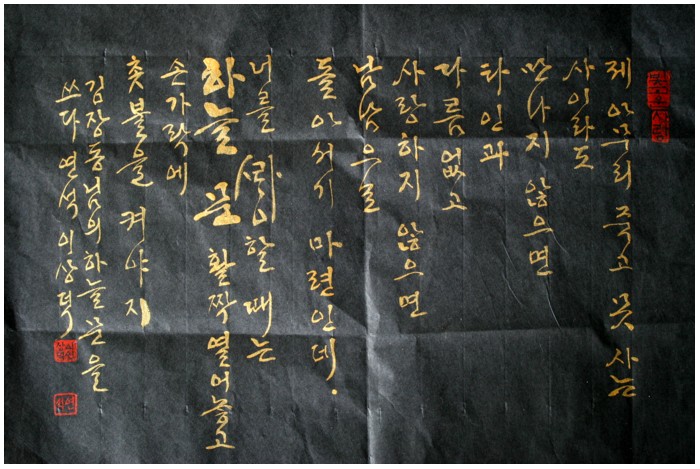 제 아무리 죽고 못 사는
사이라도
만나지 않으면
타인과
다름없고
사랑하지 않으면
남남으로
돌아서기 마련인데.
너를 할 때는
하늘문 활짝 열어놓고
손가락에
촛불을 켜야지
김장동님의 하늘문을
쓰다 연석 이상덕